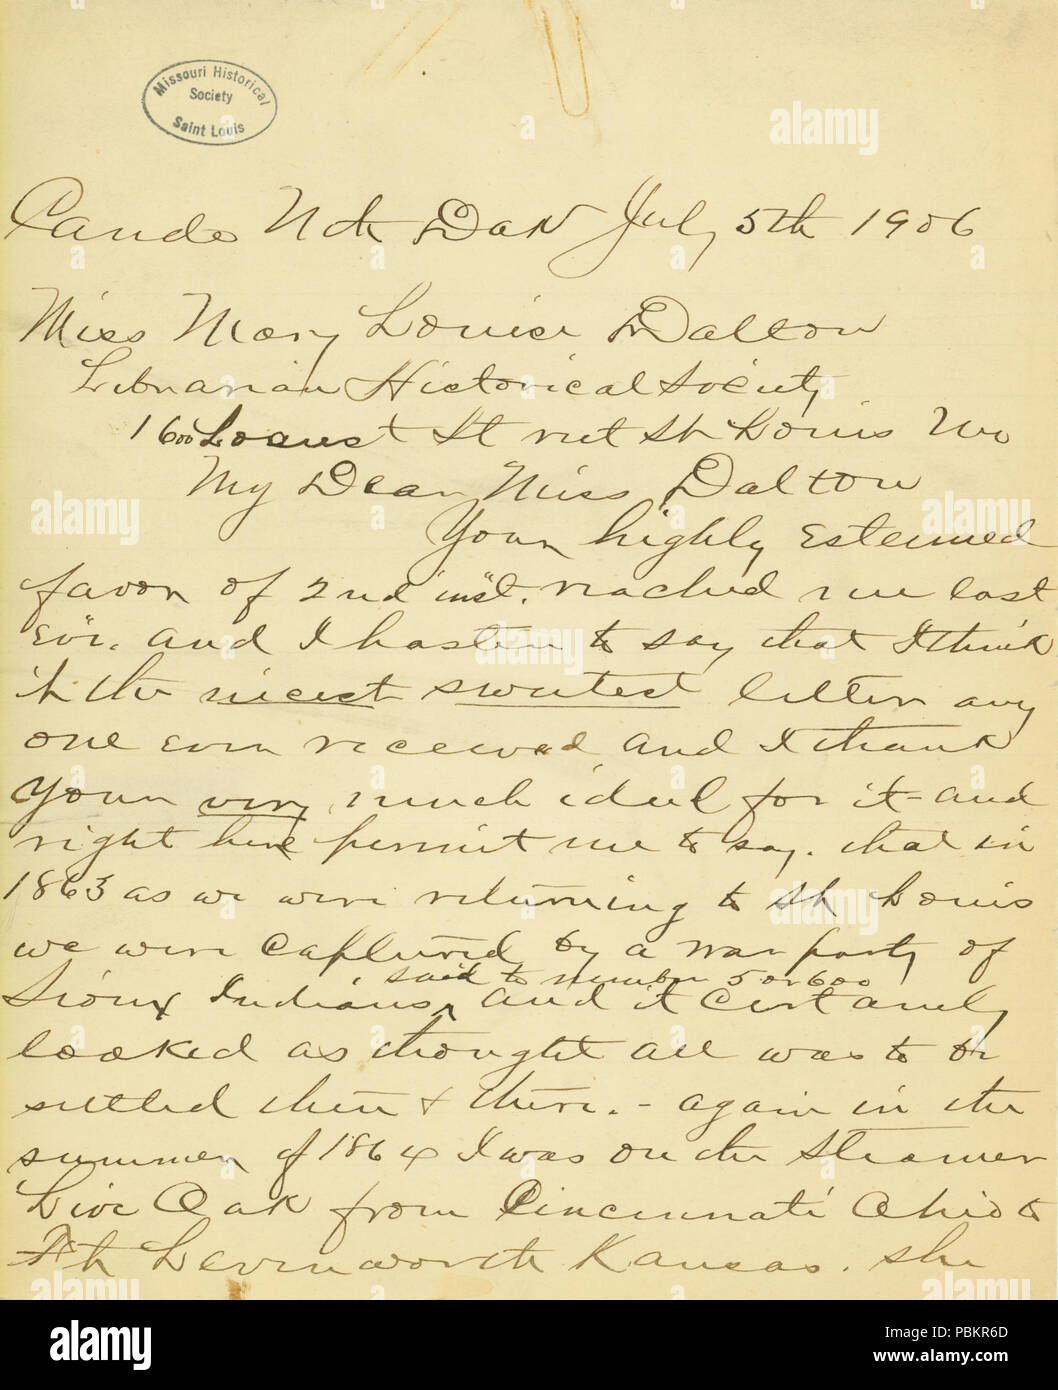 Missouri Historical
Society
Saint Louis
Cando Nth Dak July 5th 1906
Miss Mary Louise Dalton
Librarian Historical Society
1600 Locust St St Louis Mo
My Dear Miss Dalton
Your highly esteemed
favor of 2nd inst. reached me last
Eve. and I hasten to say that I think
it the nicest sweetest letter any
one ever received and I thank
Your very much ideed for it - and
right here permit me to say. that in
1863 as we were returning to St Louis
we were captured by a war party of
said to number 5 or 600
Sioux Indians ^ and it certanly
looked as thought all was to be
settled then & there. - again in the
summer of 1864 I was on the Steamer
Live Oak from Cincinnati Ohio to
Ft Levenworth Kansas. She
alamy
Image ID: PBKR6D
www.alamy.com